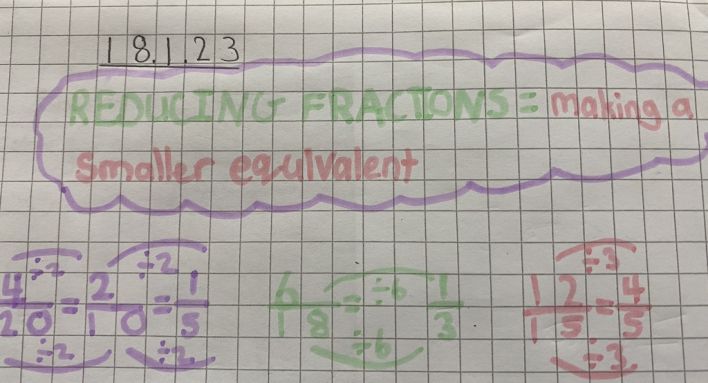 18.1.23
REDUCING FRACTIONS = making a
smaller equivalent
÷2 ÷2 ÷3
4/20 = 2/10 = 1/5 6/18 = ÷6 1/3 12/15 = 4/5
÷2 ÷2 ÷6 ÷3